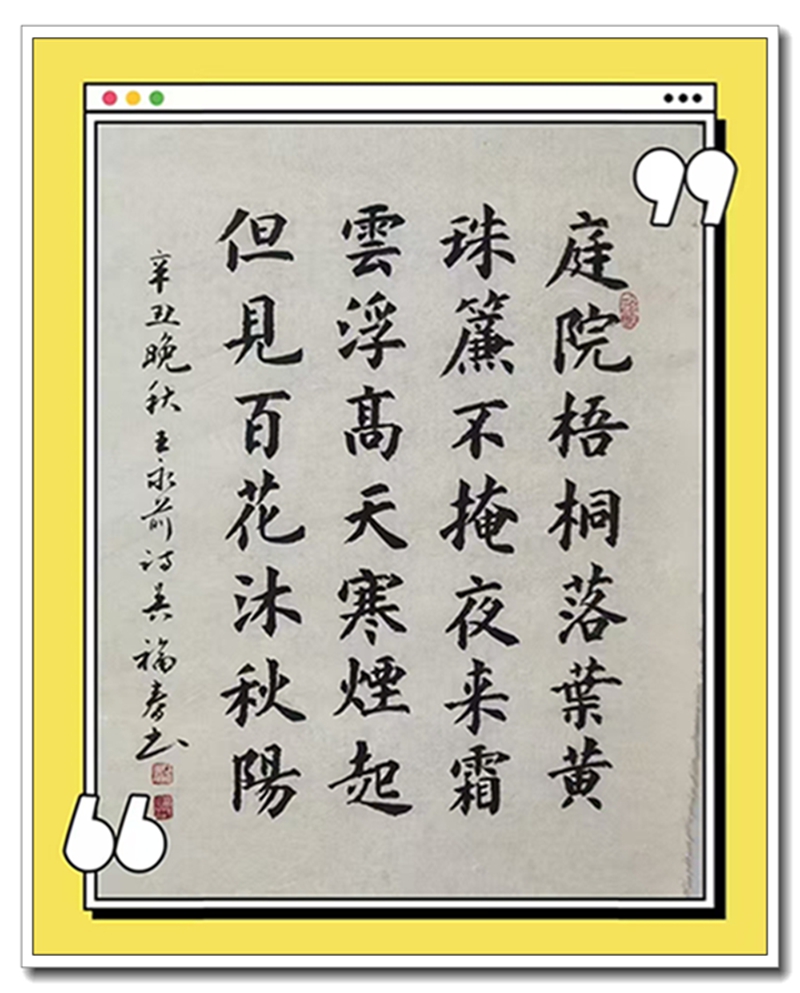 庭院梧桐落葉黄
珠簾不掩夜来霜
雲浮髙天寒煙起
但見百花沐秋陽
辛丑晚秋王永前诗吴福春书